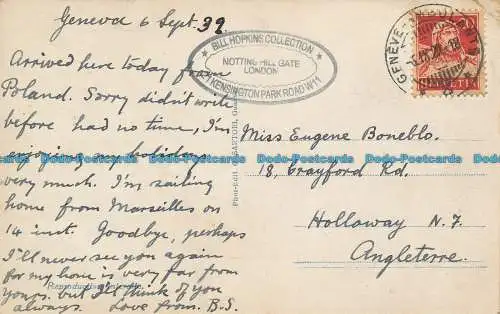 Geneva 6 Sept. 32
Arrived here today from
Poland. Sorry didn't write
before had no time, I'm
enjoying my holiday
very much. I'm sailing
home from Marseilles on
14 inst. Goodbye, perhaps
I'll never see you again
for my home is very far from
yours. but I'll think of you
always. Love from. B.S.
BILL HOPKINS COLLECTION
NOTTING HILL GATE
LONDON
KENSINGTON PARK ROAD W11
GENÈVE
20
HELVETIA
Miss Eugene Boneblo.
18, Crayford Rd.
Holloway N. 7.
Angleterre.
Dodo-Postcards Dodo-Postcards Dodo-Postcards Dodo-Postcards Dodo-Postcards